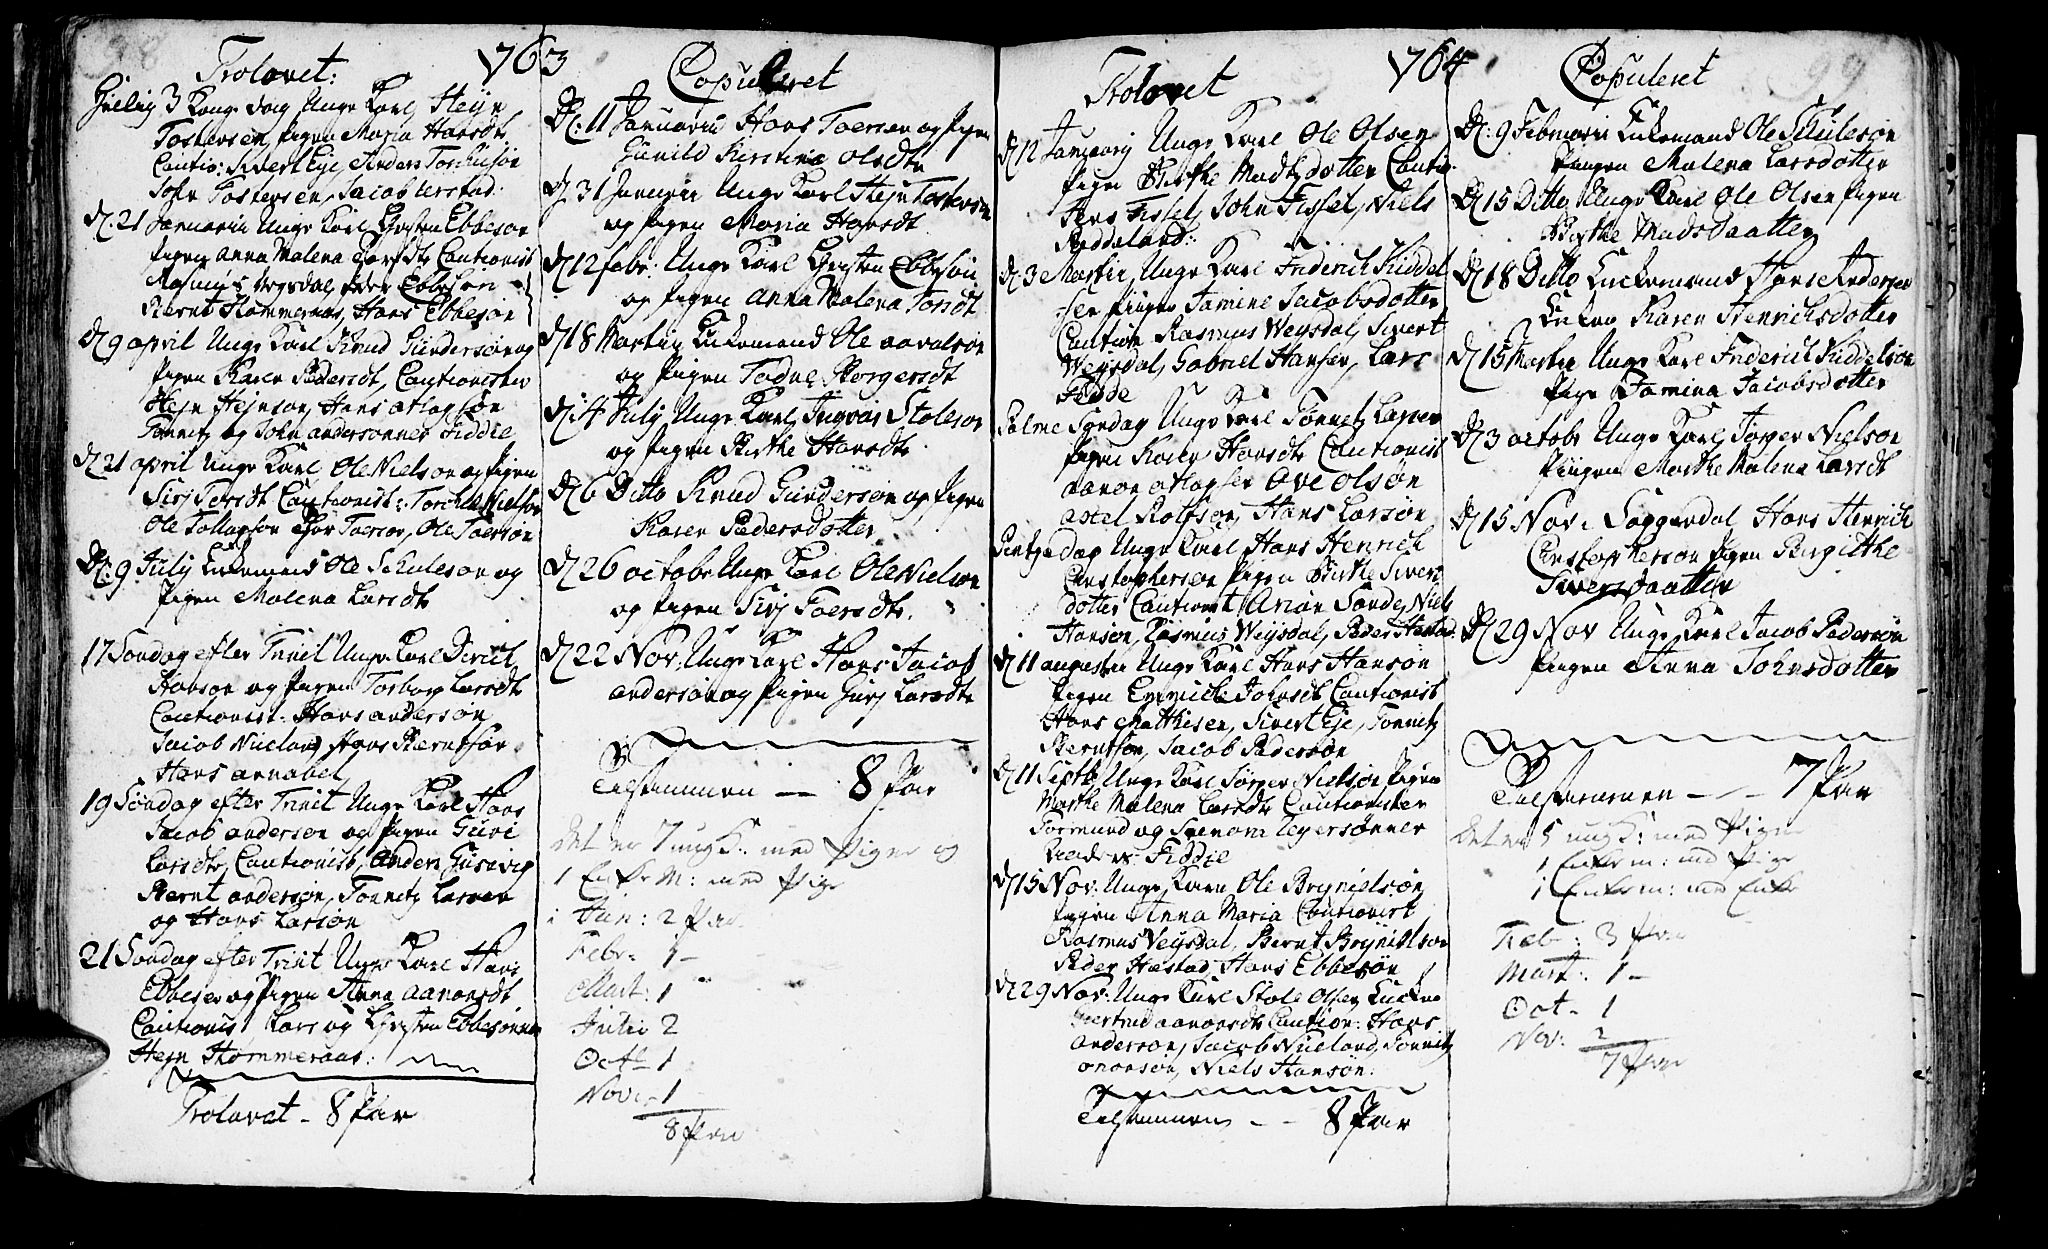 98
Trolovet: 1763
Hellig 3 Konge dag Unge Karl Heÿn
Tostensen, Pigen Maria Hansdt
Cautio: Sivert Eye, Anders
Tostensen, Jacob
D. 21 Januarii Unge Karl Christen Ebbeson
Pigen Anna Malena Torsdt Cautionist
Rasmus Vegsdal, Peder Ebbeson
Bernt Stommeraas, Hans Ebbeson
D 9 april Unge Karl Knud Gunderson og
Pigen Karen Pedersdt, Cautionister
Hejn Hejnson, Hans Atlagson
Tonnitz og John andersonner Fiddie
D. 21 april Unge Karl Ole Nielson og Pigen
Sirj Torsdt Cautionist: Torchel Nielson
Ole Tollagson Thor Toerson, Ole Toerson
D: 9 July Enkemand Ole Schuleson og
Pigen Malena Larsdt
17 Sondag efter Trinit Unge Karl Sivert
Hanson og Pigen Torborg Larsdt
Cautionist: Hans anderson
Jacob Nueland, Hans Berntson
Hans annabel
19 Sondag efter Trinit Unge Karl Hans
Jacob anderson og Pigen Guri
Larsdt, Cautionist, Anders
Bernt anderson, Tonnitz Larsen
og Hans Larson
21 Sondag efter Trinit Unge Karl Hans
Ebbesen og Pigen Anna aanonsdt
Cautionist Lars og Christen Ebbesonner
Hejn Stommeraas:
Trolovet - 8 Par
Copuleret
D: 11 Januarii Hans Toersen og Pigen
Gunild Kirstine Olsdt
D 31 Januarii Unge Karl Hejn Tostenson
og Pigen Maria Hansdt
D 12 febr: Unge Karl Christen Ebbeson
og Pigen Anna Malena Torsdt
D 18 Martii Enkemand Ole aavalson
og Pigen Todne Borgersdt
D: 4 July Unge Karl Ingvar Stoleson
og Pigen Birthe Hansdt
D 6 Ditto Knud Gunderson og Pigen
Karen Pedersdotter
D 26 octobr Unge Karl Ole Nielson
og Pigen Sirj Toersdt
D 22 Nov. Unge Karl Hans Jacob
anderson og Pigen Gurj Larsdt
Tilsammen — 8 Par
det er 7 ung K: med Piger og
1 Enke M: med Pige
i Jan: 2 Par
Febr: 1 —
Mart: 1
Julii 2
Octr 1
Nov: 1
8 Par
99
Trolovet 1764
D 12 January Unge Karl Ole Olsen
Pigen Birthe Madtzdotter Cautio:
Jens Fissel, John Fissel, Niels
Reddeland:
D. 3 Martii Unge Karl Friderich Fiddel
sen Pigen Jamine Jacobsdotter
Caution Rasmus Weysdal, Sivert
Weysdal, Gabriel Hansen, Lars
Fedde
Palme Søndag Unge Karl Tonnitz Larsen
Pigen Karen Hansdt Cautionist
aanon atlagsen Ove Olsøn
astel Rolfson, Hans Larsøn
Pintzedag Unge Karl Hans Henrich
Christopherson Pigen Birthe Sivers
dotter Cautionist Arian Sande, Niels
Hanson, Rasmus Weysdal, Peder Hæstad
D 11 augusti Unge Karl Hans Hansøn
Pigen Johnsdt Cautionist
Hans Matthisen, Sivert Eje, Tonnitz
Berntson, Jacob Pederson
D 11 Septbr Unge Karl Jørgen Nielson Pigen
Marthe Malena Larsdt Cautionister
Tormund og
Fiddie
D 15 Nov: Unge Karl Ole Brynielsøn
Pigen Anna Maria Cautionist
Rasmus Veysdal, Bernt Brynielson
Peder Hæstad, Hans Ebbesøn
D 29 Nov: Unge Karl Stole Olsen Enken
Giertrud aanonsdt Caution: Hans
anderson, Jacob Nueland, Tonnitz
aanonson, Niels Hansøn:
Tilsammen — 8 Par
Copuleret
D: 9 Februarii Enkemand Ole Schuleson
Pigen Malena Larsdotter
D 15 Ditto Unge Karl Ole Olsen Pigen
Birthe Madsdaatter
D 18 Ditto Enkemand Hans Andersen
Enken Karen Henrichsdotter
D 15 Martii Unge Karl Friderich Fiddelson
Pige Jamina Jacobsdotter
D 3 octobr Unge Karl Jørgen Nielson
Piigen Marthe Malena Larsdt
D 15 Nov. Hans Henrich
Christopherson Pigen Birgitthe
Siversdaatter
D 29 Nov Unge Karl Jacob Pedersøn
Pigen Anna Johnsdotter
Tilsammen — 7 Par
Det er 5 ung K: med Piger
1 Enke m: med Pige
1 Enke m: med Enke
Feb: 3 Par
Mart: 1 —
Oct - 1
Nov: 2
7 Par